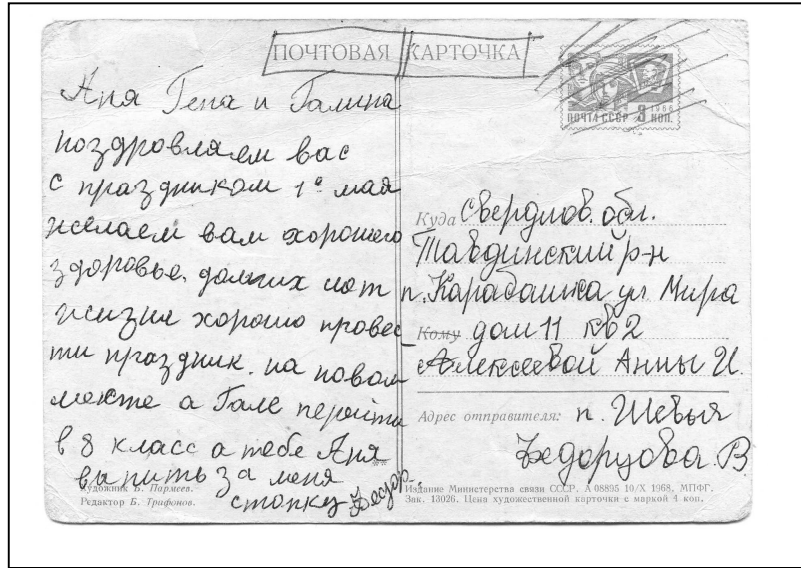 ПОЧТОВАЯ КАРТОЧКА
ПОЧТА СССР 3 КОП.
1966
Аня Гена и Галина
поздровляем вас
с праздником 1º мая
желаем вам хорошего
здоровье. долгих лет
жизне хорошо провес
ти праздник. на новом
месте а Гале перейти
в 8 класс а тебе Аня
выпить за меня
стопку Федор.
Куда Свердлов. обл.
Тавдинский р-н
п. Карабашка ул Мира
Кому дом 11 кв 2
Алексеевой Анны И.
Адрес отправителя: п. Шевья
Федорцова. В
Художник Б. Пармеев.
Редактор Б. Трифонов.
Издание Министерства связи СССР. А 08895 10/X 1968. МПФГ.
Зак. 13026. Цена художественной карточки с маркой 4 коп.